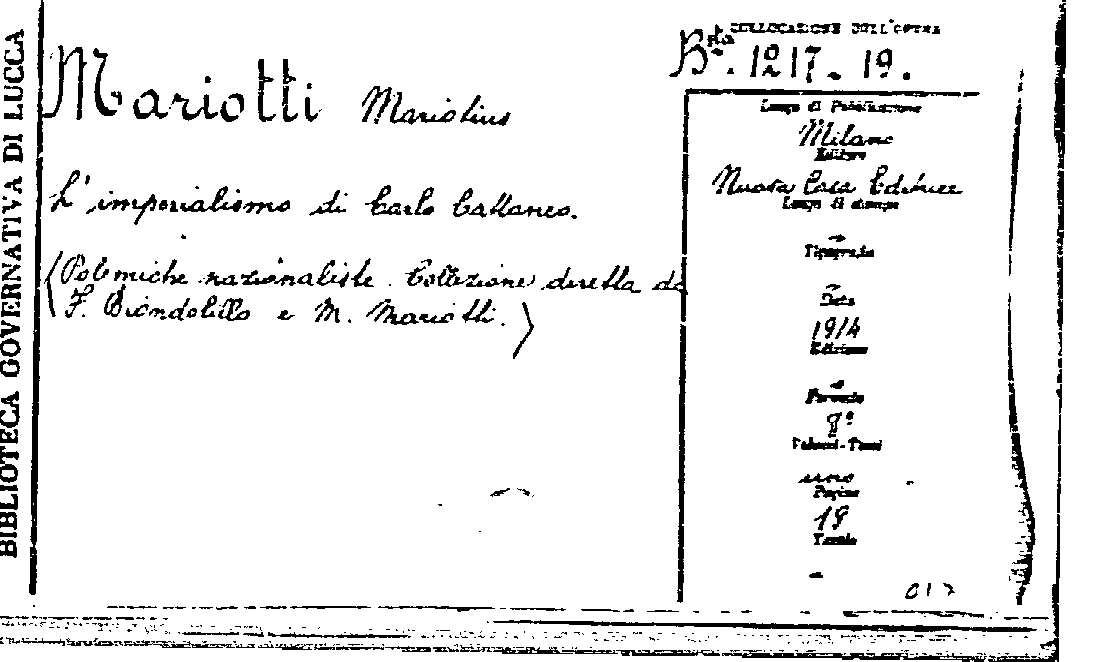 BIBLIOTECA GOVERNATIVA DI LUCCA
COLLOCAZIONE DELL'OPERA
Bta. 1217. 19.
Mariotti Mariotius
L'imperialismo di Carlo Cattaneo.
(Polemiche nazionaliste. Collezione diretta da
F. Biondolillo e M. Mariotti.)
Luogo di Pubblicazione
Milano
Editore
Nuova Casa Editrice
Luogo di stampa
-
Tipografia
-
Data
1914
Edizione
-
Formato
8°
Volumi-Tomi
uno
Pagine
19
Tavole
-